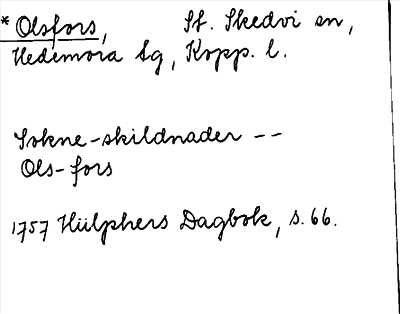 * Olsfors, St. Skedvi sn,
Hedemora tg, Kopp. l.
Sokne-skildnader --
Ols-fors
1757 Hülphers Dagbok, s. 66.